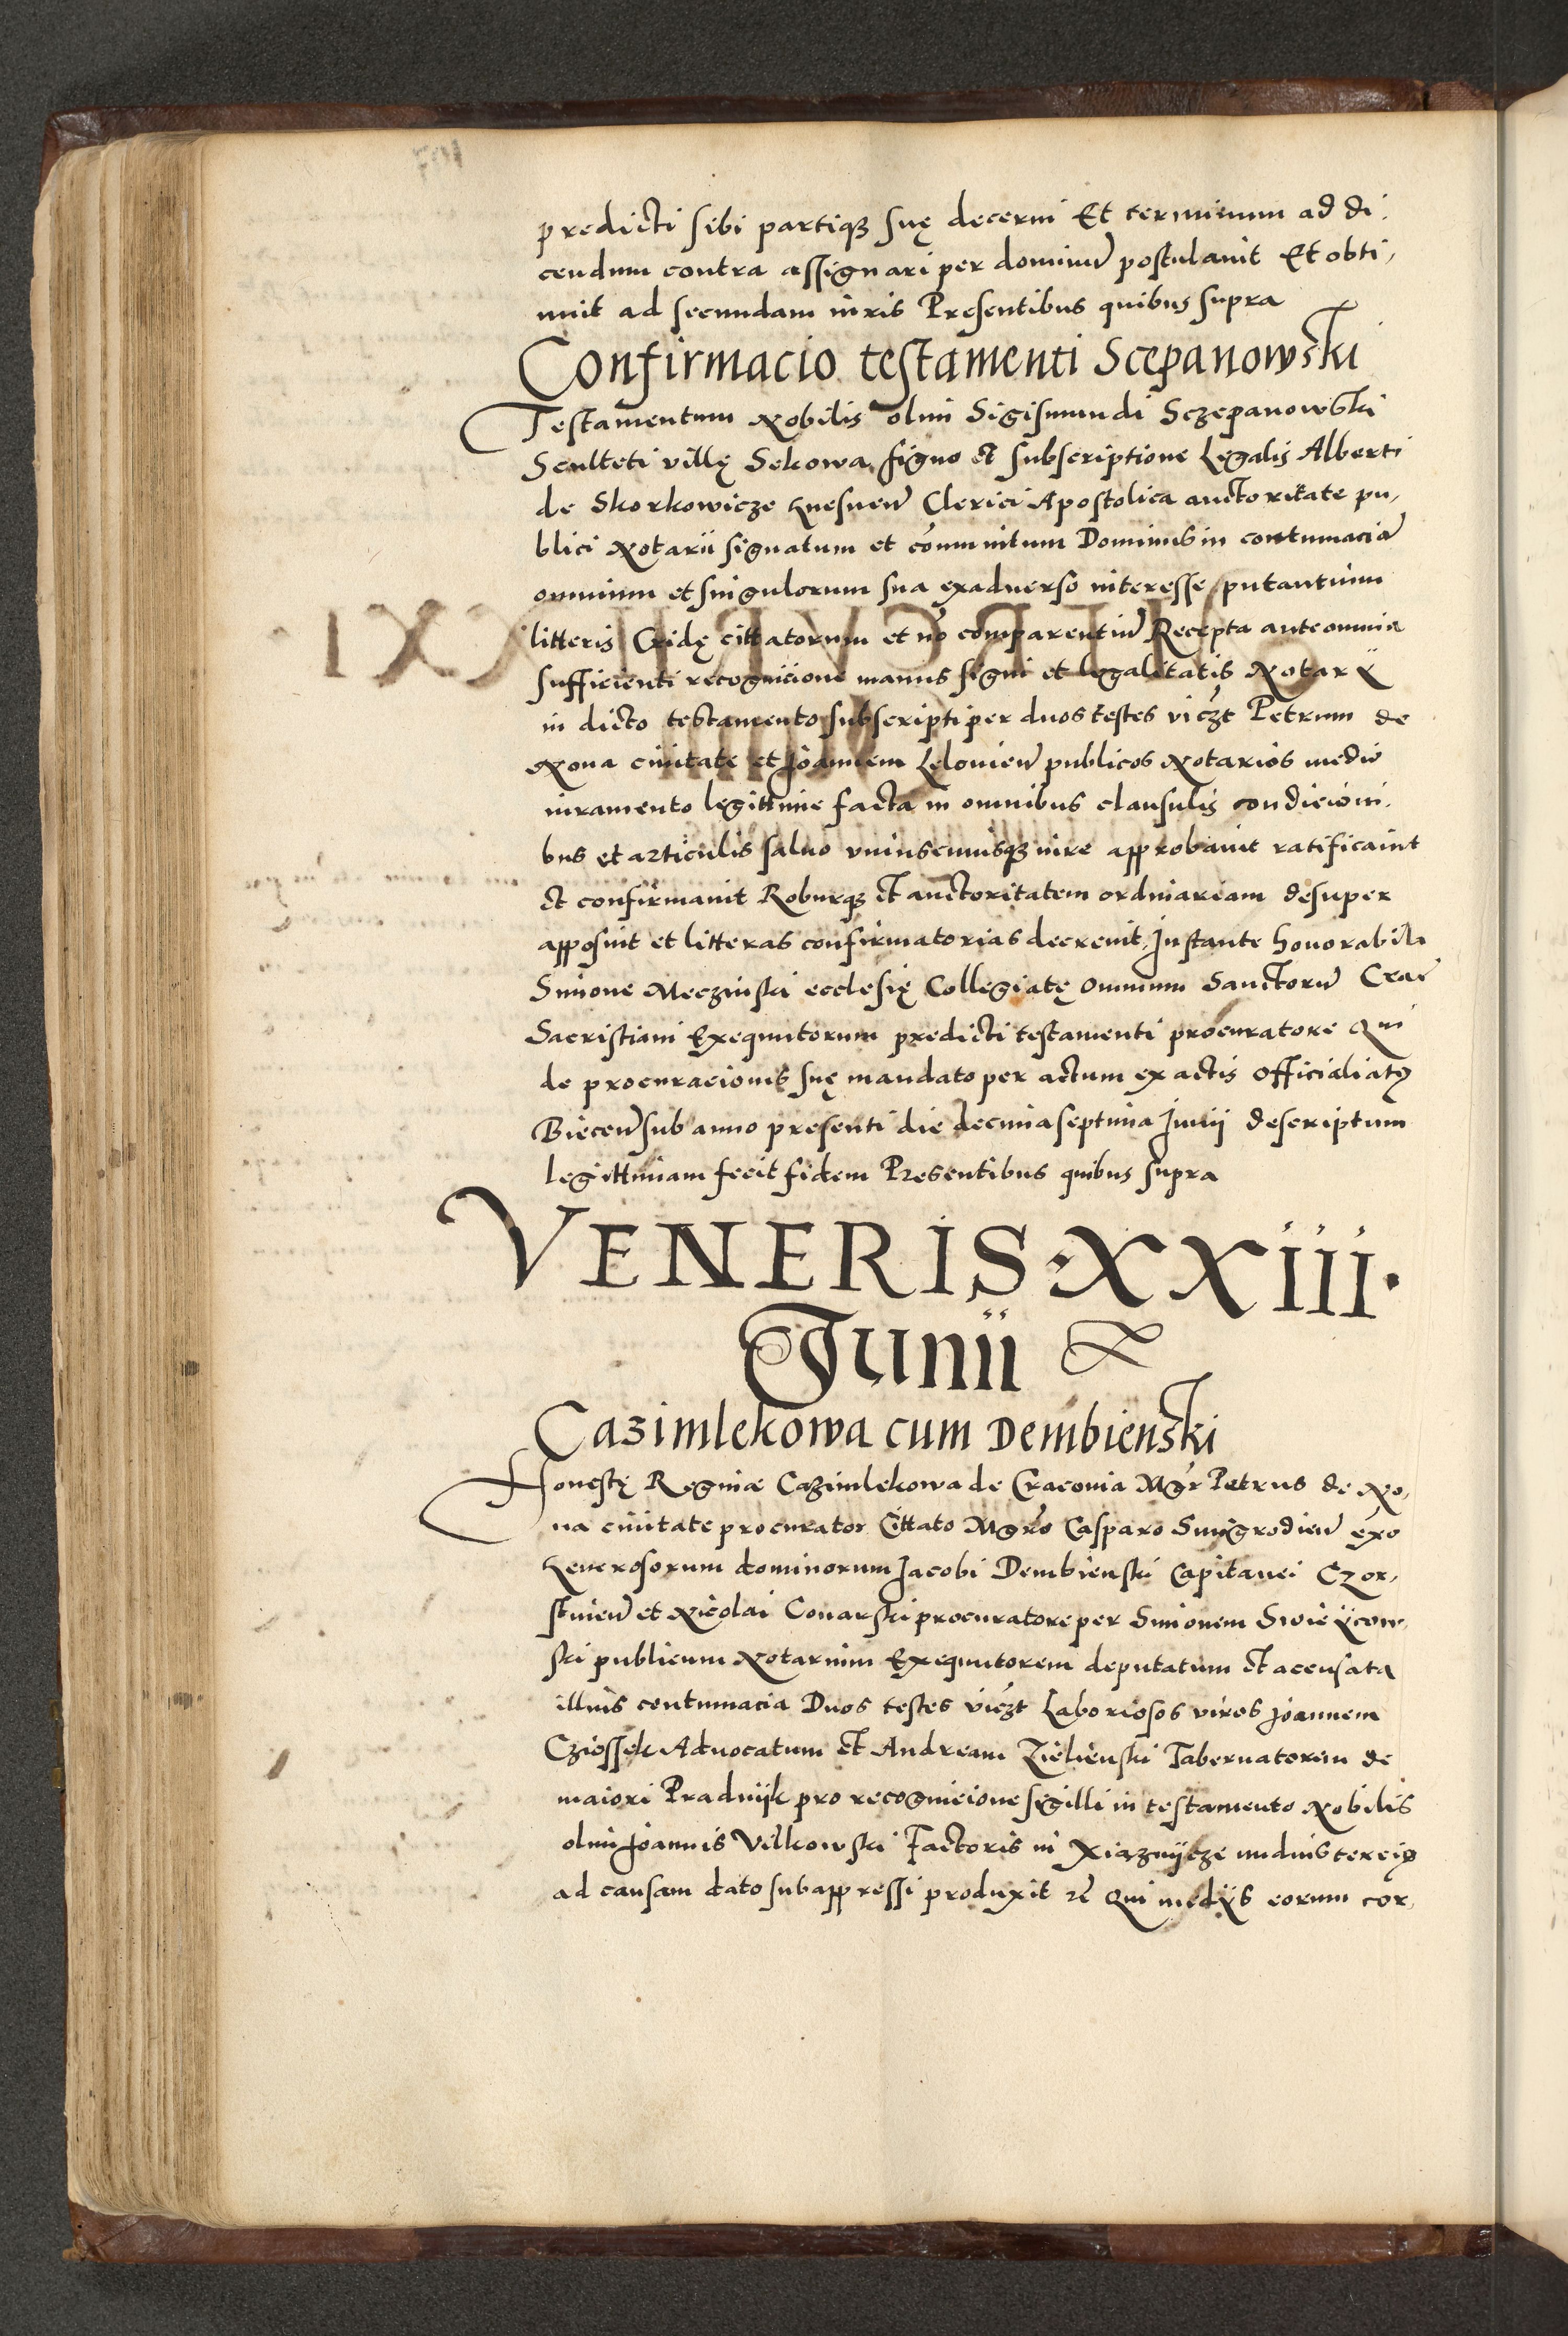 predicti sibi partiq₃ suę decerni Et terminum ad di,
cendum contra assignari per dominũ postulauit Et obti,
nuit ad secundam iuris Presentibus quibus supra
Confirmacio testamenti Scepanowski
Testamentum Nobilis olim Sigismundi Sczepanowski
Sculteti villę Sekowa, signo et subscriptione Legalis Alberti
de Skorkowicze Gnesneñ Clerici Apostolica auctoritate pu,
blici Notarii signatum et cõmunitum Dominus in contumaciã
omnium et singulorum sua exaduerso interesse putantium
litteris Cridę cittatorum et nõ comparentiũ Recepta ante omnia
sufficienti recognicione manus signi et legalitatis Notarÿ
in dicto testamento subscripti per duos testes viczt Petrum de
Noua ciuitate et Joannem Lelouieñ publicos Notarios medio
iuramento legittime facta in omnibus clausulis condicioni,
bus et articulis saluo vniuscuiusq₃ iure approbauit ratificauit
et confirmauit Roburq₃ et auctoritatem ordinariam desuper
apposuit et litteras confirmatorias decreuit, Instante honorabili
Simone Meczinski ecclesię Collegiatę Omnium Sanctorũ Crac̃
Sacristiani Exequutorum predicti testamenti procuratore Qui
de procuracionis suę mandato per actum ex actis officialiatꝰ
Bieceñ sub anno presenti die decima septima Junii descriptum
legittimam fecit fidem Presentibus quibus supra
VENERIS·XXIII·
Junii
Cazimlekowa cum Dembienski
Honestę Reginæ Cazimlekowa de Cracouia Mgr̃ Petrus de No,
ua ciuitate procurator Cittato Mgrõ Casparo Smigrodieñ exo
Generosorum dominorum Jacobi Dembienski Capitanei Czor,
stineñ et Nicolai Conarski procuratore per Simonem Swieÿcow,
ski publicum Notarium Exequutorem deputatum et accusata
illius contumacia Duos testes viczt Laboriosos viros Joannem
Cziossek Aduocatum et Andream Zielienski Tabernatorem de
maiori Pradnijk pro recognicione sigilli in testamento Nobilis
olim Joannis Vilkowski Factoris in Xiaznijcze nudiustereiꝰ
ad causam dato subappressi produxit et Qui medÿs eorum cor,